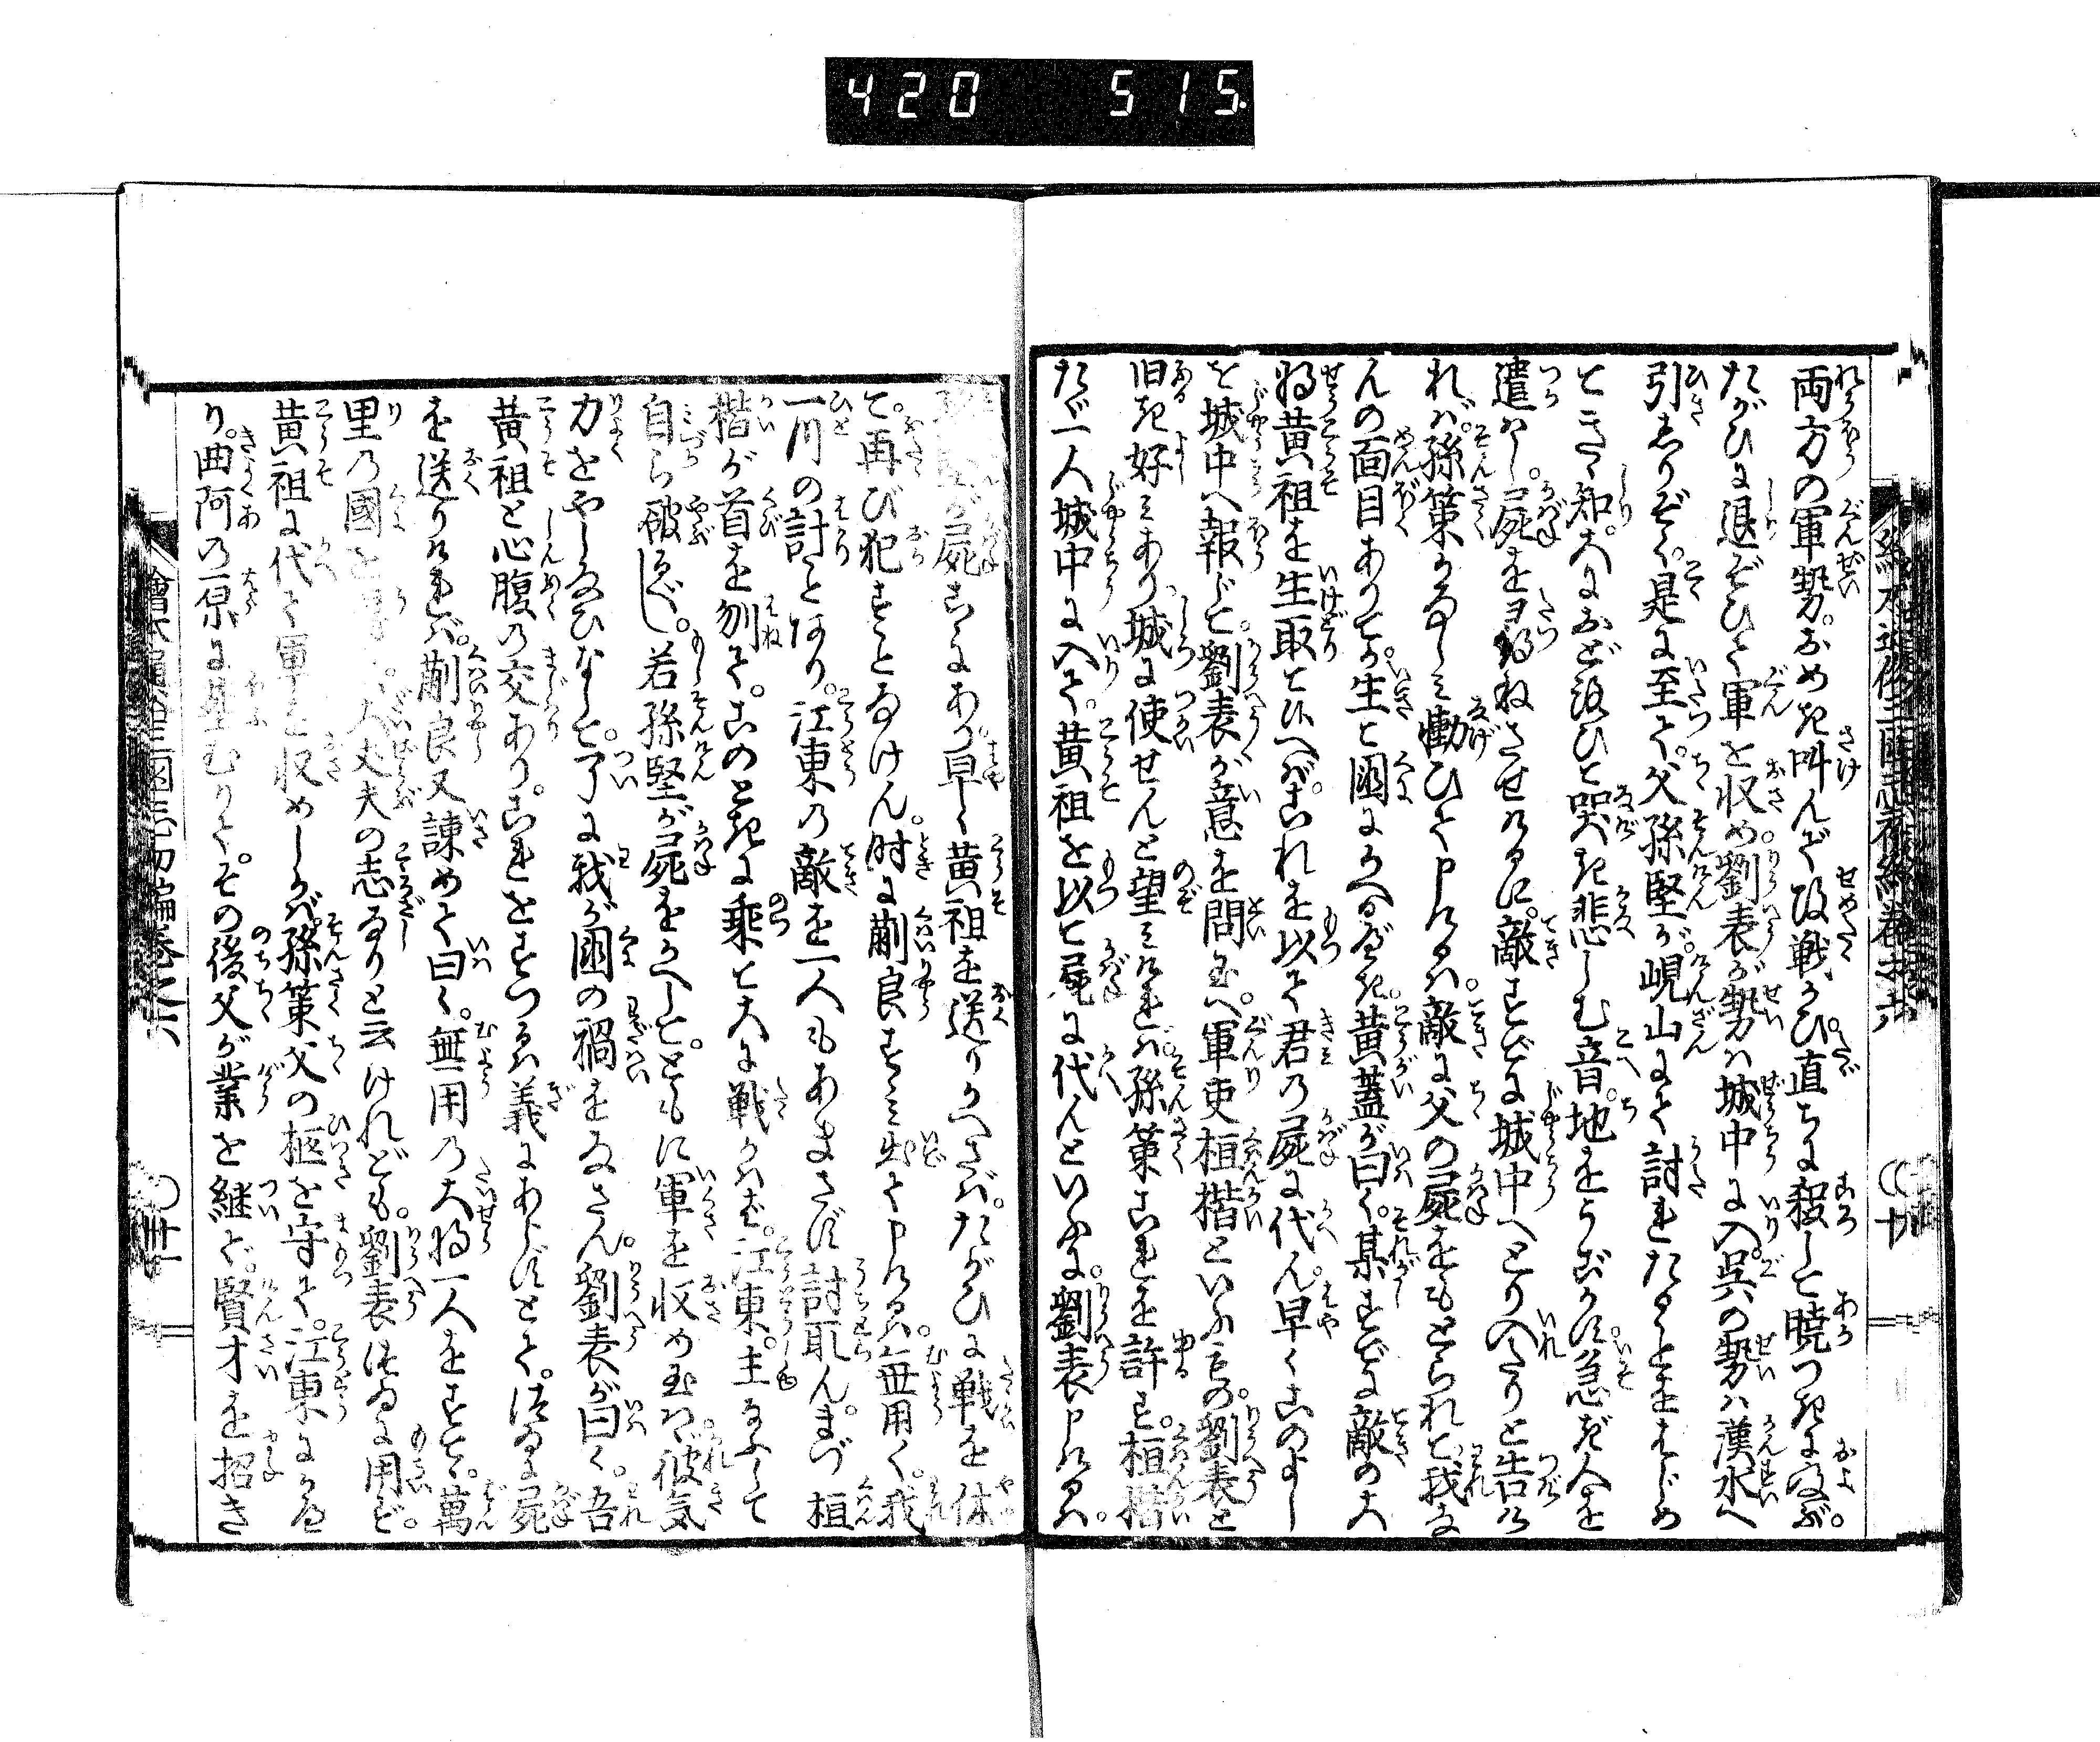 420 515
両方の軍勢。おめき叫んで攻戦かひ。直ちに殺して暁つきに及ぶ。
たがひに退ぞひて軍を収め。劉表が勢ハ城中に入。呉の勢ハ漢水へ
引しりぞく。是に至て。父孫堅が。峴山にて討れたることをはじめ
てきゝ知。大におどろひて哭き悲しむ音。地をうごかす。急ぎ人を
遣ハし。屍をヨ尋ねさせけるに。敵すでに城中へとり入たりと告け
れバ。孫策かなしミ慟ひて申けるハ。敵に父の屍をもとられて。我な
んの面目ありてか。生て國にかへるべき。黄蓋が曰く。某すでに敵の大
将黄祖を生取て候へバ。これを以て君の屍に代ん。早くこのよし
を城中へ報じて。劉表が意を問玉へ。軍吏桓楷といふもの。劉表と
旧き好ミあり。城に使せんと望ミけれバ。孫策これを許す。桓楷
たゞ一人城中に入て。黄祖を以て屍に代んといふに。劉表申けるハ。
孫堅が屍こゝにあり。早く黄祖を送りかへさバ。たがひに戦を休
て。再び犯すことなけん。時に蒯良すゝミ出て申けるハ。無用く。我
一つの計ことあり。江東の敵を一人もあまさず討取ん。まづ桓
楷が首を刎て。このときに乗て大に戦かハゞ。江東。主なふして
自ら破るべし。若孫堅が屍をかへして。ともに軍を収め玉ハゞ。彼気
力をやしなひなして。了に我が國の禍をなさん。劉表が曰く。吾
黄祖と心腹の交あり。これをすつるハ義にあらずとて。つゐに屍
を送りけれバ。蒯良又諫めて曰く。無用の大将一人をすてゝ。萬
里の國を得るハ。大丈夫の志なりと云けれども。劉表つゐに用ず。
黄祖に代て軍を収めしかバ。孫策父の柩を守て。江東にかへ
り。曲阿の原に葬むりて。その後父が業を継で。賢才を招き